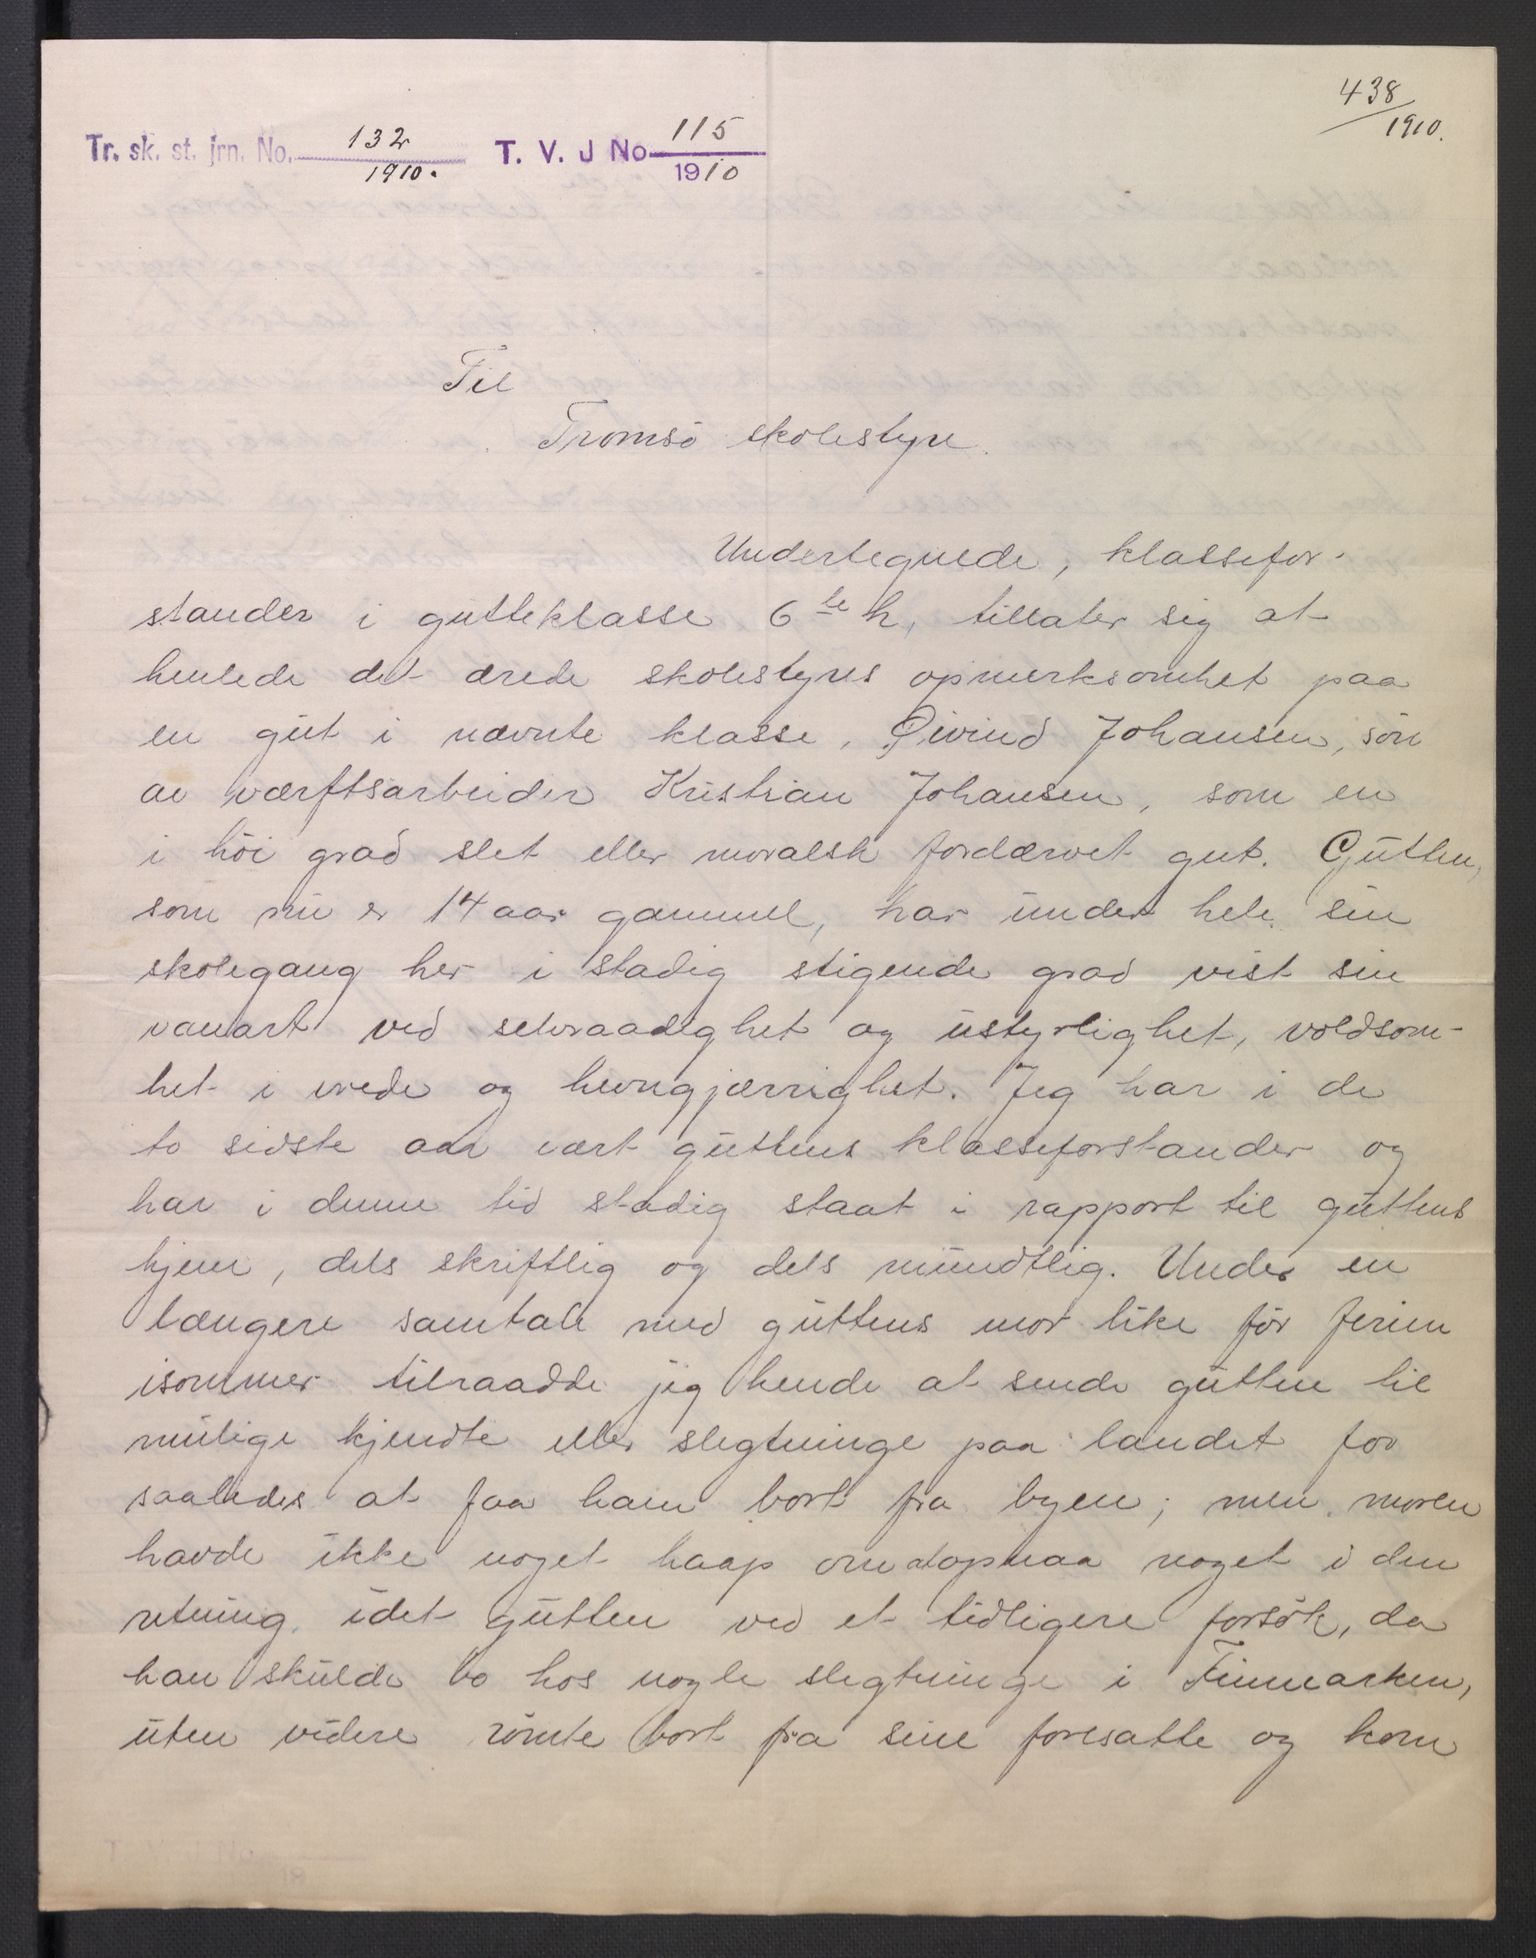 438
1910.
Tr. sk. st. jrn. No. 132
1910.
T. V. J No 115
1910
Til
Tromsö skolestyre.
Undertegnede, klassefor-
stander i gutteklasse 6te h, tillater sig at
henlede det ærede skolestyres opmerksomhet paa
en gut i nævnte klasse, Øivind Johansen, sön
av værftsarbeider Kristian Johansen, som en
i höi grad slet eller moralsk fordærvet gut. Gutten,
som nu er 14 aar gammel, har under hele sin
skolegang her i stadig stigende grad vist sin
vanart ved selvraadighet og ustyrlighet, voldsom-
het i vrede og hevngjærrighet. Jeg har i de
to sidste aar vært guttens klasseforstander og
har i denne tid stadig staat i rapport til guttens
hjem, dels skriftlig og dels mundtlig. Under en
længere samtale med guttens mor like før ferien
isommer tilraadde jeg hende at sende gutten til
mulige kjendte eller slegtninge paa landet for
saaledes at faa ham bort fra byen; men moren
havde ikke noget haap om at opnaa noget i den
retning, idet gutten ved et tidligere forsök, da
han skulde bo hos nogle slegtninge i Finmarken,
uten videre römte bort fra sine foresatte og kom